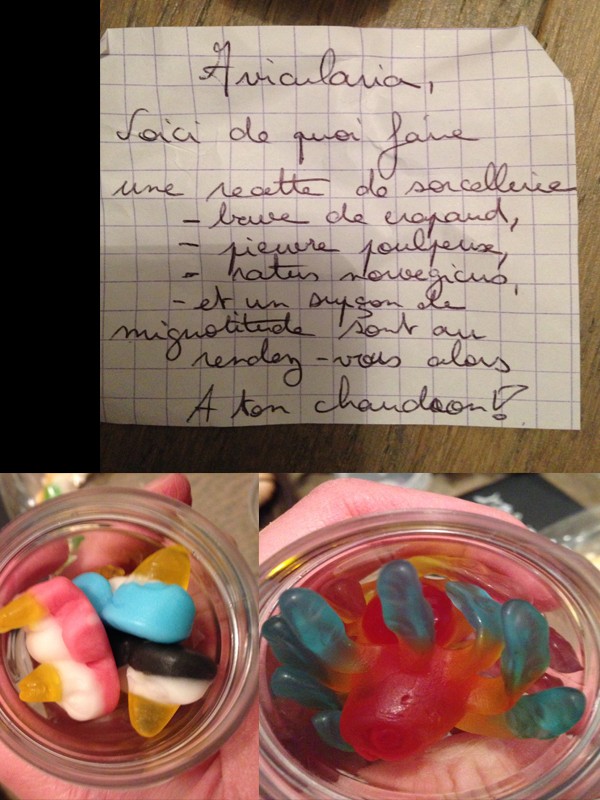 Avicularia,
Voici de quoi faire
une recette de sorcellerie
- bave de crapaud,
- pieuvre poulpeuse,
- ratus norvegicus,
- et un supçon de
mignotitude sont au
rendez-vous alors
A ton chaudron !